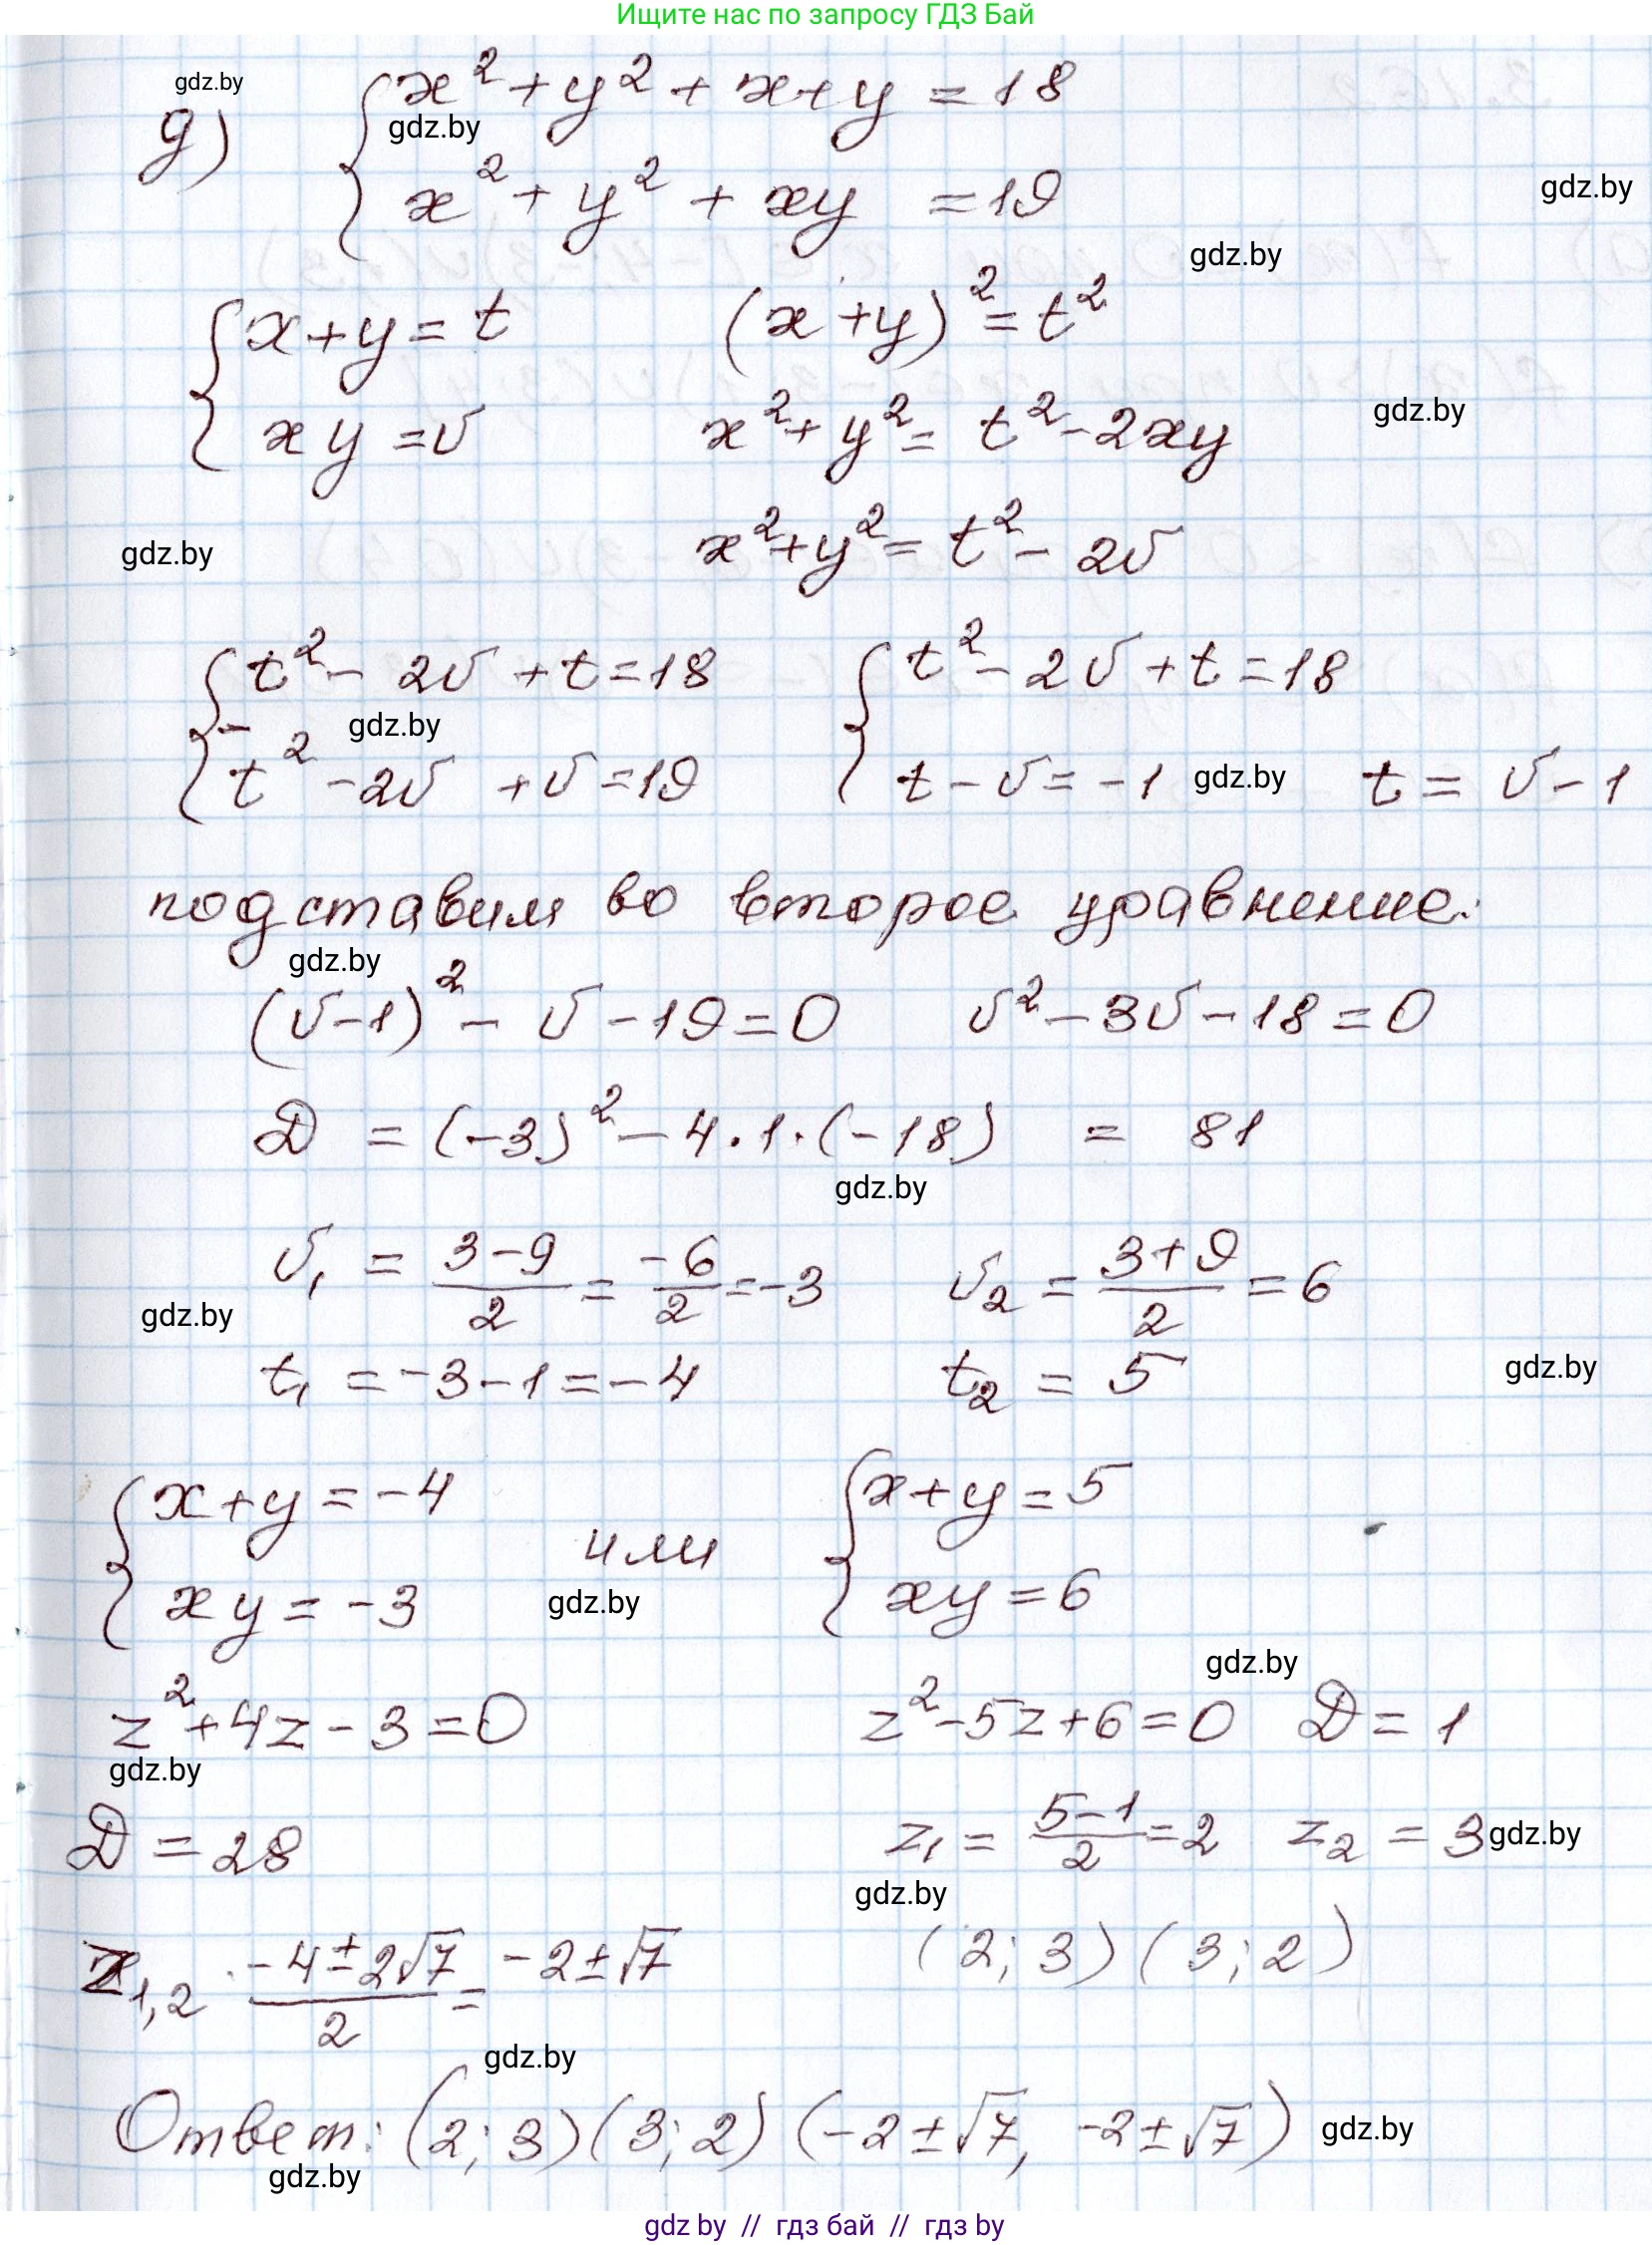 Ищите нас по запросу ГДЗ Бай
gdz.by
д) { x² + y² + x + y = 18
gdz.by
x² + y² + xy = 19
gdz.by
gdz.by
{ x + y = t (x + y)² = t²
xy = v x² + y² = t² - 2xy
gdz.by
gdz.by x² + y² = t² - 2v
{ t² - 2v + t = 18 { t² - 2v + t = 18
- gdz.by
t² - 2v + v = 19 t - v = -1 gdz.by t = v - 1
подставим во второе уравнение:
gdz.by
(v-1)² - v - 19 = 0 v² - 3v - 18 = 0
D = (-3)² - 4·1·(-18) = 81
gdz.by
v₁ = (3-9)/2 = -6/2 = -3 v₂ = (3+9)/2 = 6
gdz.by
t₁ = -3 - 1 = -4 t₂ = 5 gdz.by
{ x + y = -4 { x + y = 5
или
xy = -3 gdz.by xy = 6
gdz.by
z² + 4z - 3 = 0 z² - 5z + 6 = 0 D = 1
gdz.by
D = 28 z₁ = (5-1)/2 = 2 z₂ = 3 gdz.by
gdz.by
z₁,₂ (-4 ± 2√7)/2 = -2 ± √7 (2; 3) (3; 2)
gdz.by
Ответ: (2; 3) (3; 2) (-2 ± √7, -2 ± √7) gdz.by
gdz.by
gdz by // гдз бай // гдз by